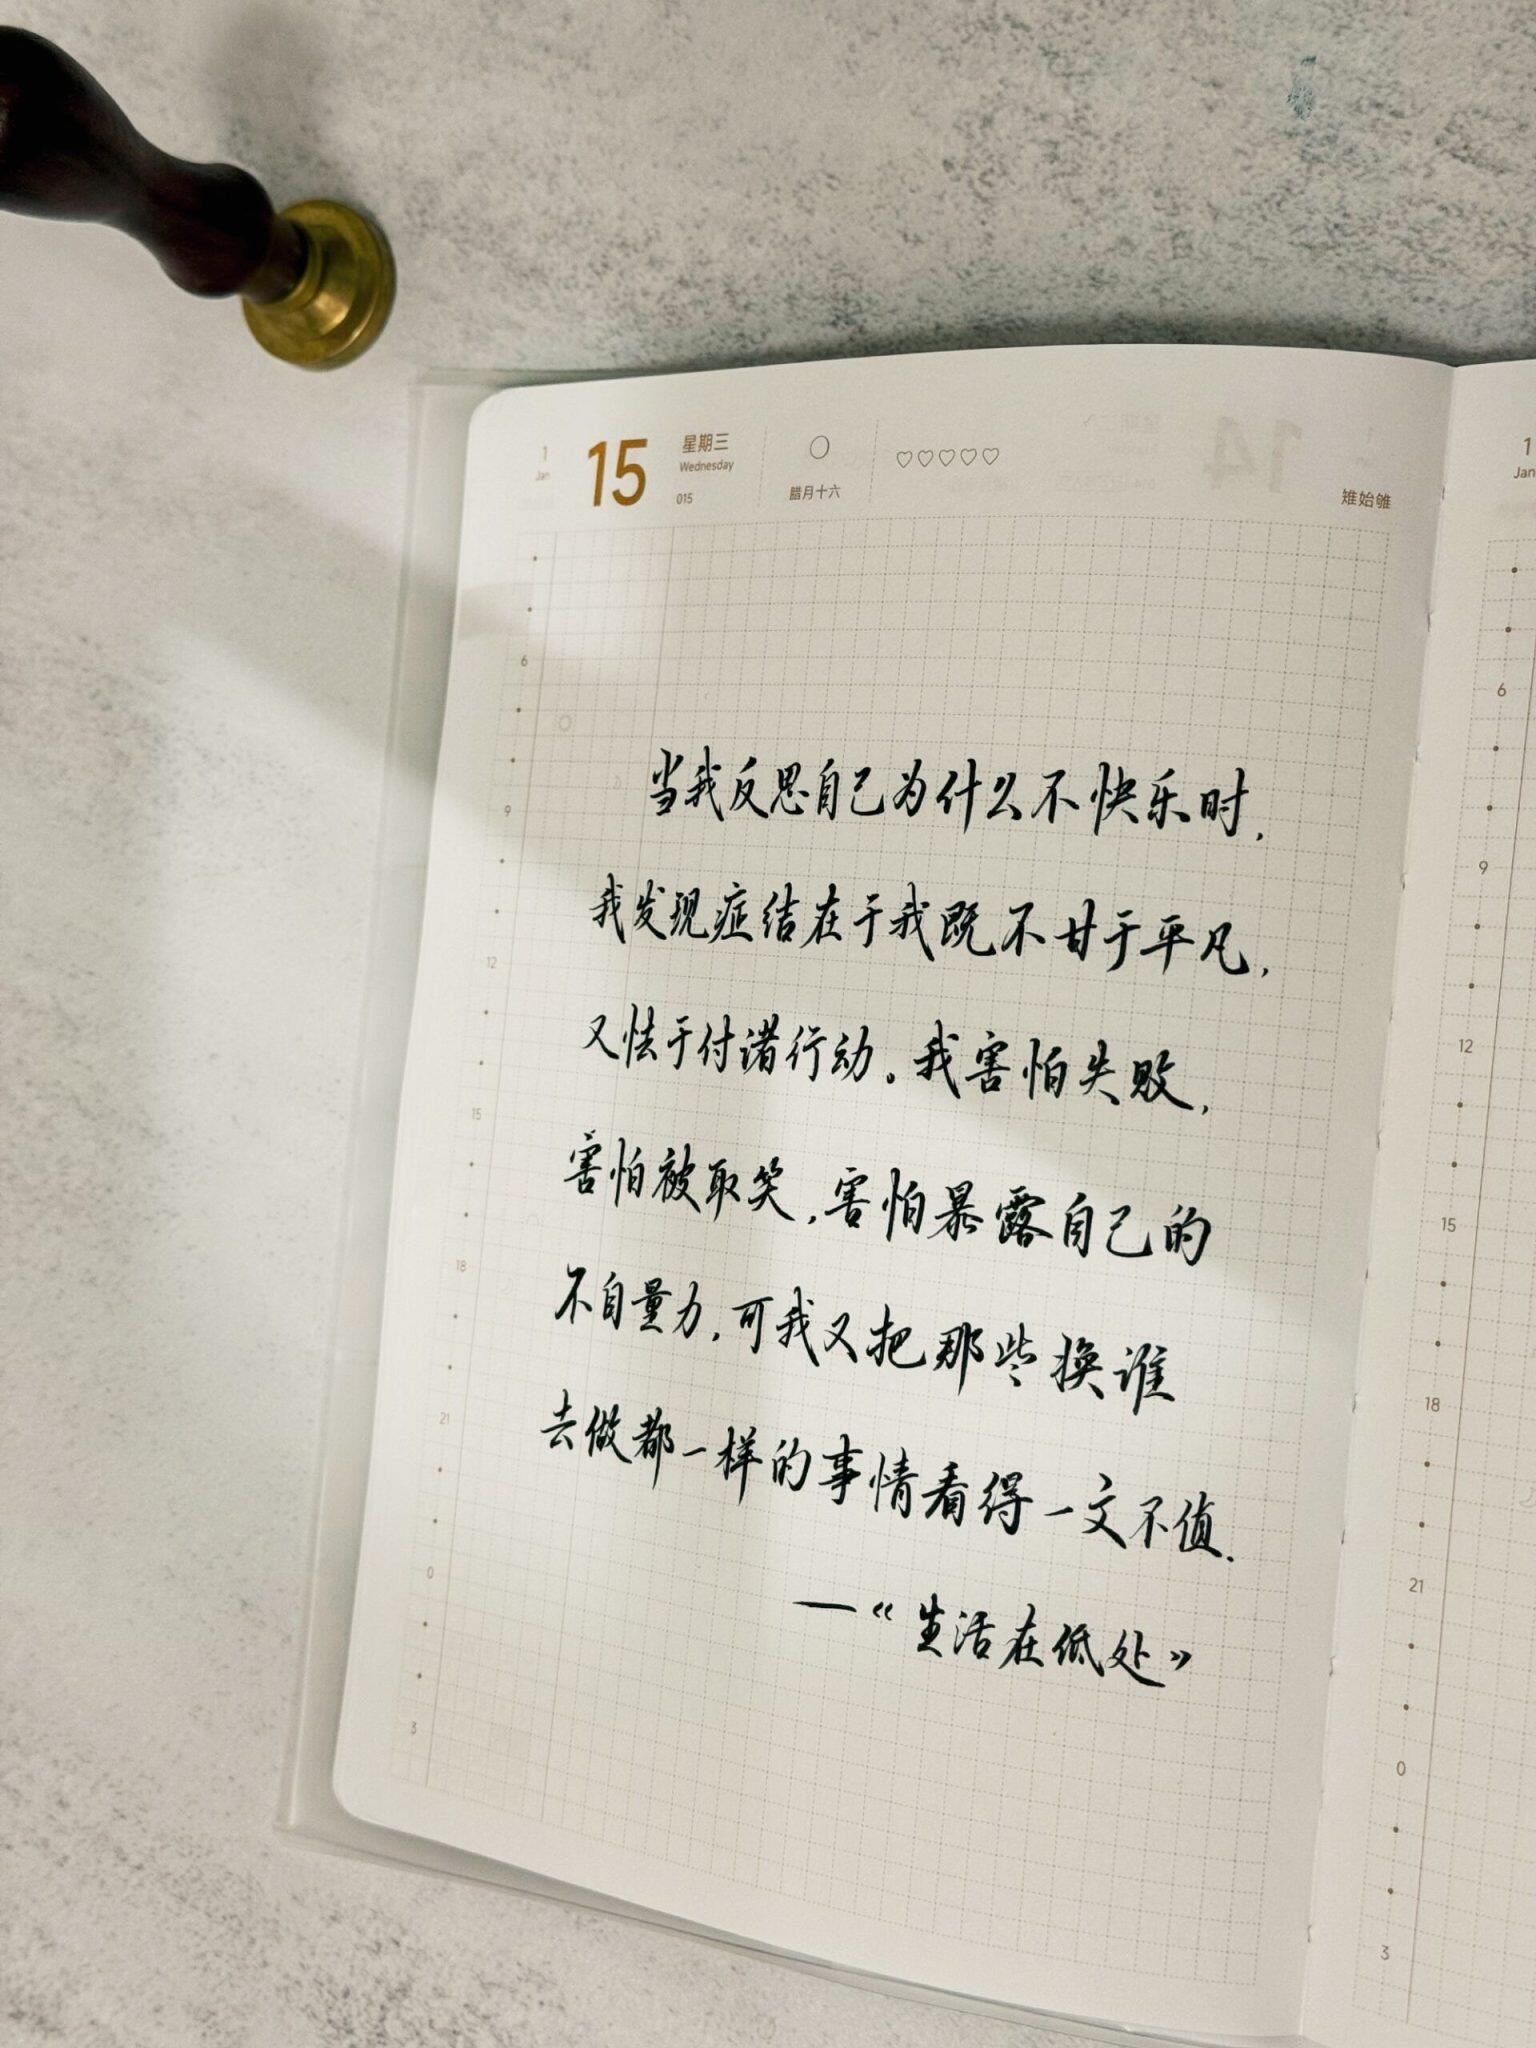 1
Jan
15
星期三
Wednesday
015
腊月十六
雉始雊
当我反思自己为什么不快乐时，
我发现症结在于我既不甘于平凡，
又怯于付诸行动。我害怕失败，
害怕被取笑，害怕暴露自己的
不自量力，可我又把那些换谁
去做都一样的事情看得一文不值.
—《生活在低处》
6
9
12
15
18
21
0
3
1
Jan
6
9
12
15
18
21
0
3